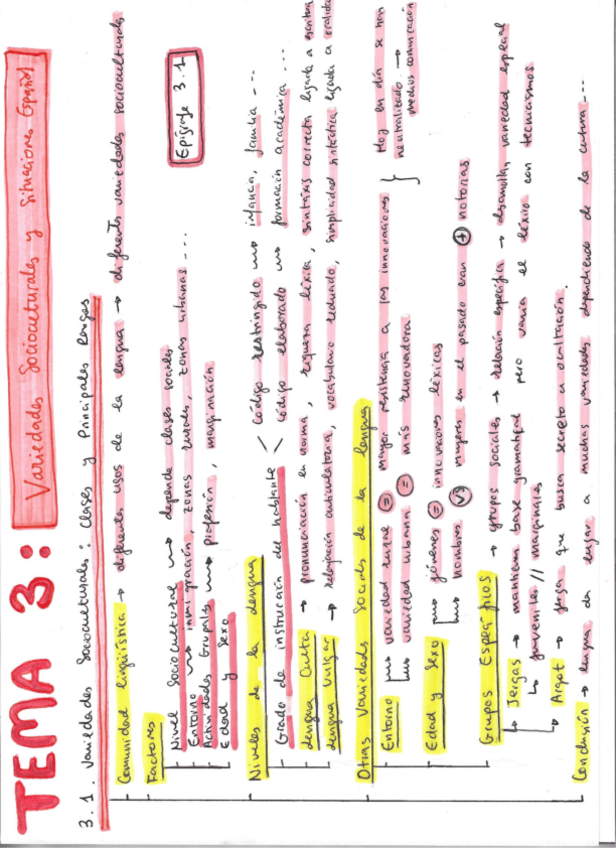 TEMA 3:
Variedades Socioculturales y Situaciones Español
3.1. Variedades Socioculturales: Clases y Principales Rasgos
Comunidad lingüística → diferentes usos de la lengua → diferentes variedades socioculturales
Factores
Nivel Sociocultural → depende clases sociales
Entorno → inmigración, zonas rurales, zonas urbanas ...
Actividades Grupales → profesión, marginación
Edad y sexo
Epígrafe 3.1
Niveles de la lengua
Grado de instrucción del hablante < código restringido → infancia, familia ...
código elaborado → formación académica ...
Lengua Culta → pronunciación en norma, riqueza léxica, sintaxis correcta ligada a escritura
Lengua Vulgar → relajación articulatoria, vocabulario reducido, simplicidad sintáctica ligada a oralidad
Otras Variedades Sociales de la lengua
Entorno → variedad rural = mayor resistencia a las innovaciones
→ variedad urbana = más renovadora
} Hoy en día se han
neutralizado →
medios comunicación
Edad y sexo → jóvenes = innovaciones léxicas
→ hombres vs mujeres en el pasado eran + notorias
Grupos Específicos → grupos sociales → relación específica → desarrollan variedad especial
Jergas → mantienen base gramatical pero varía el léxico con tecnicismos
↳ juveniles // marginales
Argot → jerga que busca secreto u ocultación.
Conclusión → lengua da lugar a muchas variedades dependiendo de la cultura ...